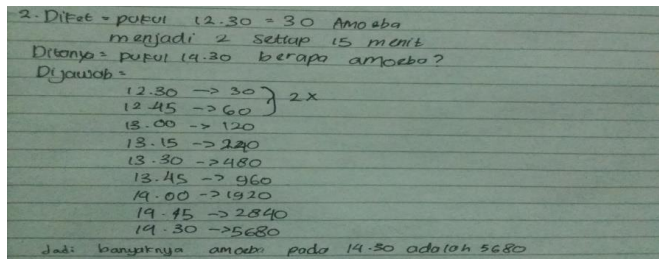 2. Diket = pukul 12.30 = 30 Amoeba
menjadi 2 settap 15 menit
Ditanya = pukul 14.30 berapa amoeba?
Dijawab =
12.30 -> 30
12.45 -> 60 } 2x
13.00 -> 120
13.15 -> 240
13.30 -> 480
13.45 -> 960
14.00 -> 1920
14.15 -> 2840
14.30 -> 5680
Jadi banyaknya amoeba pada 14.30 adalah 5680